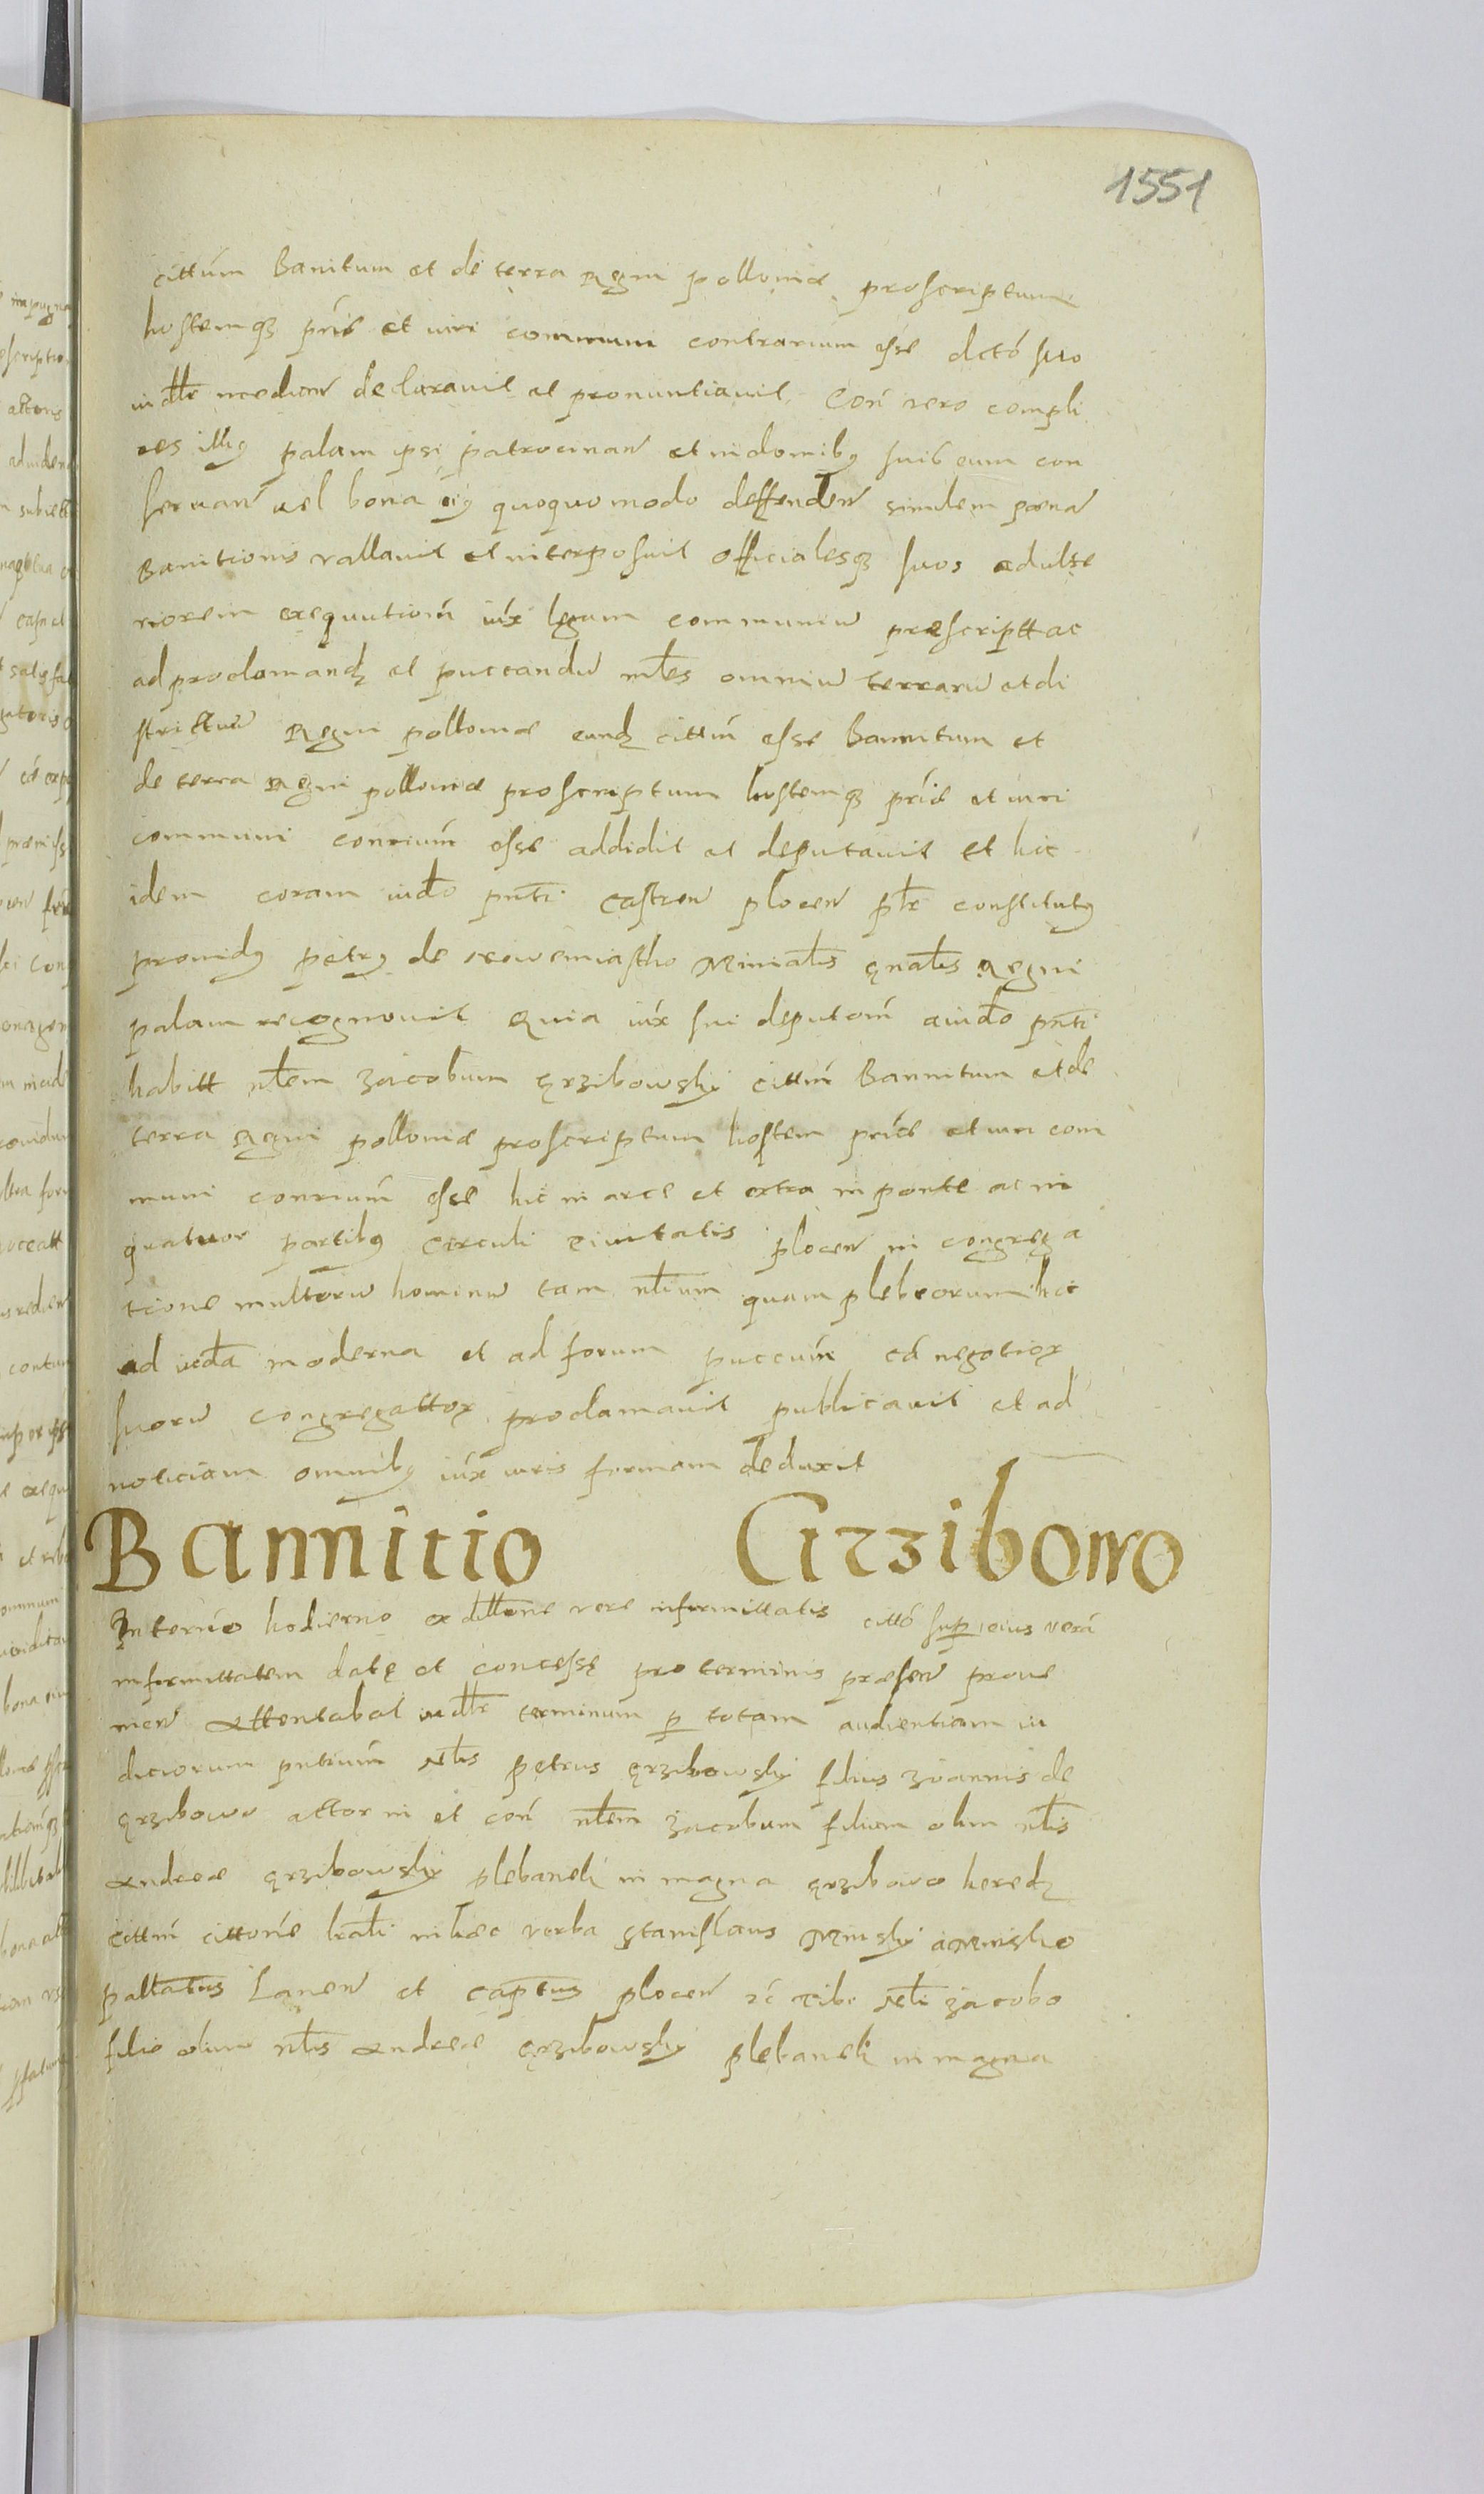 1551
cittum Banitum et de terra Regni polloniæ proscriptum
hostemqʒ prıæ et iuri communi contrarium esse dcto suo
iudlr medien declarauit et pronuntiauit Con vero compli
ces illıꝰ palam ipsi patrocinan et in domibꝰ suis eum con
seruan uel bona eiꝰ quoquomodo deffenden similem pœna
Banitionis vallauit et interposuit officialesqʒ suos ad ulte
riorem exequutiom iux legum communiu præscriptt ac
ad proclamandʒ et puccandu mles omniu terraru et di
strictuu Regni polloniæ eundʒ cittm esse Bannitum et
de terra Regni polloniæ proscriptum hostemqʒ priæ et iuri
communi conrium esse addidit et deputauit et hic
idem coram iudo pnti Castren plocen plr constitutꝰ
prouidꝰ petrꝰ de nowemiastho Minialis gnalis Regni
palam recognouit Quia iux sui deputom a iudo pnti
habitt nlem Jacobum Grzibowsky cittm Bannitum et de
terra Regni polloniæ proscriptum hostem priæ et iuri com
muni conrium esse hic in arce et extra in ponte ac in
quatuor partibꝰ circuli Ciuitatis plocen in congrega
tione multoru hominu tam nlium quam plebeorum hic
ad iudcia moderna et ad forum puccum cā negotioꝝ
suoru congregattoꝝ proclamauit publicauit et ad
noticiam omnibꝰ iux iuris formam deduxit
Bannitio Grzibowo
In termo hodierno ex dillone vere infirmittatis citto super eius verā
infirmittatem datę et concessę pro terminis præsen proue
nien Attentabat iudlr terminum per totam audientiam iu
diciorum pntium Nlis petrus Grzibowsky filius Joannis de
Grzibowo actor in et con nlem Jacobum filium olim nlis
Andreæ Grzibowsky plebanek in magna Grzibowo heredʒ
cittm cittone lrali in hæc verba Stanislaus Minsky a Minsko
pallatus Lancn et captus plocen rc Tibi Nli Jacobo
filio olim nlis Andreæ Grzibowsky plebanek in magna